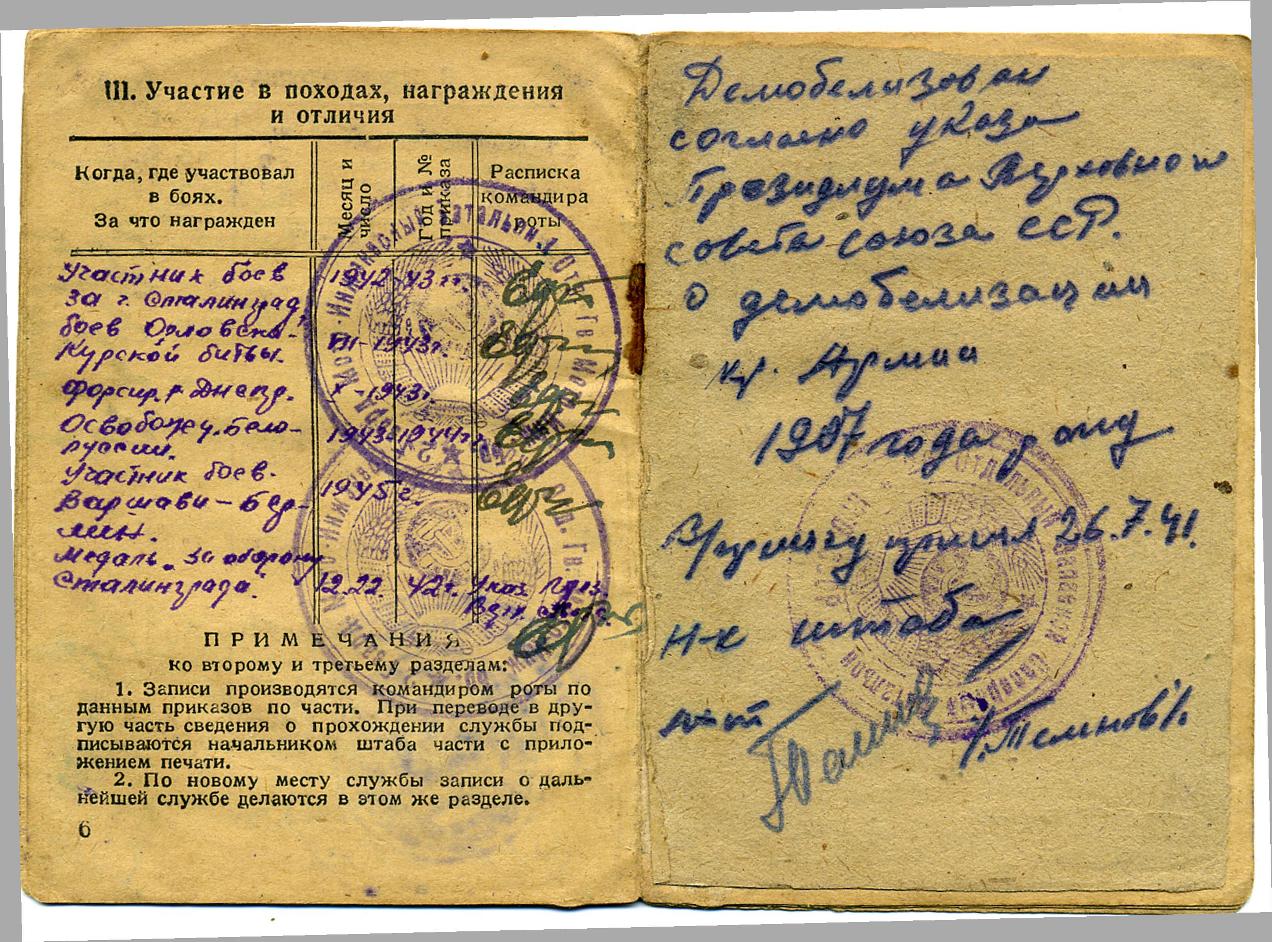 III. Участие в походах, награждения
и отличия
Когда, где участвовал
в боях.
За что награжден
Месяц и
число
Год и №
приказа
Расписка
командира
роты
Участник боев
за г. Сталинград, 1942-43 гг.
боев Орловско-
Курской битвы. VII-1943г.
форсир. р Днепр. X-1943г.
Освобожд. Бело- 1943-1944гг.
руссии.
Участник боев.
Варшави - Бер- 1945 г.
лин.
Медаль „За оборону
Сталинграда". 12.22. 42г. Указ През
Верх.
ПРИМЕЧАНИЯ
ко второму и третьему разделам:
1. Записи производятся командиром роты по
данным приказов по части. При переводе в дру-
гую часть сведения о прохождении службы под-
писываются начальником штаба части с прило-
жением печати.
2. По новому месту службы записи о даль-
нейшей службе делаются в этом же разделе.
6
Демобелизован
согласно указа
Президиума Верховного
совета союза ССР.
О демобелизации
кр. Армии
1907 года рожд
В/присягу принял 26.7.41.
Н-к штаба
/Темнов/.